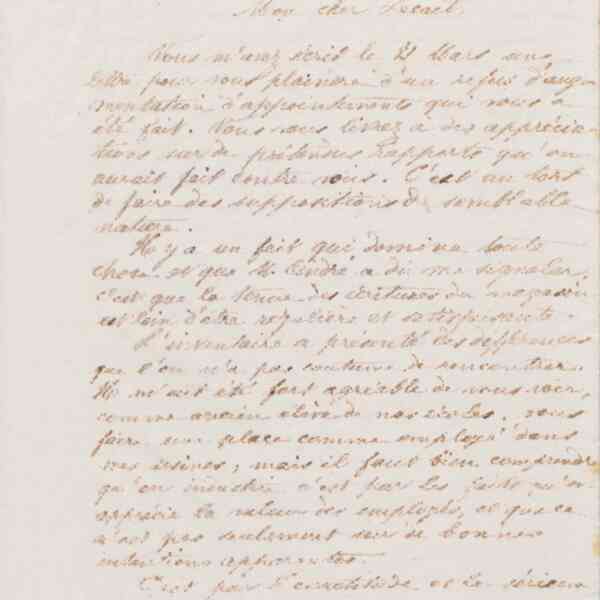 Mon cher
Vous m'avez écrit le 21 Mars une
lettre pour vous plaindre d'un refus d'aug
mentation d'appointements qui vous a
été fait. Vous vous livrez a des apprécia
tions sur de prétendus rapports qu'on
aurait fait contre vous. C'est un tort
de faire des suppositions de semblable
nature.
Il y a un fait qui domine toute
chose et que M. André a dû me signaler,
c'est que la tenue des écritures du magasin
est loin d'être régulière et satisfaisante.
L'inventaire a présenté des différences
que l'on n'a pas coutume de rencontrer.
Il m'eut été fort agréable de vous voir,
comme ancien élève de nos écoles, vous
faire une place comme employé dans
mes usines, mais il faut bien comprendre
qu'en industrie c'est par les faits qu'on
apprécie la valeur des employés, et que ce
n'est pas seulement sur de bonnes
intentions apparentes.
C'est par l'exactitude et le sérieux